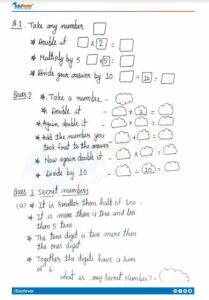 Edufever
Q.1 Take any number □
* Double it □ × 2 = □
* Multiply by 5 □ × 5 = □
* Divide your answer by 10 □ ÷ 10 = □
Ques 2 * Take a number -
* Double it - × 2 =
* Again double it - × =
* Add the number you
took first to the answer - + =
* Now again double it - × =
* Divide by 10 - ÷ 10 =
Ques 3 Secret numbers
(a) * It is smaller than half of 100 -
* It is more than 4 tens and less
than 5 tens.
* The tens digit is two more than
the ones digit.
* Together the digits have a sum
of 6.
What is my Secret Number? -
/Edufever